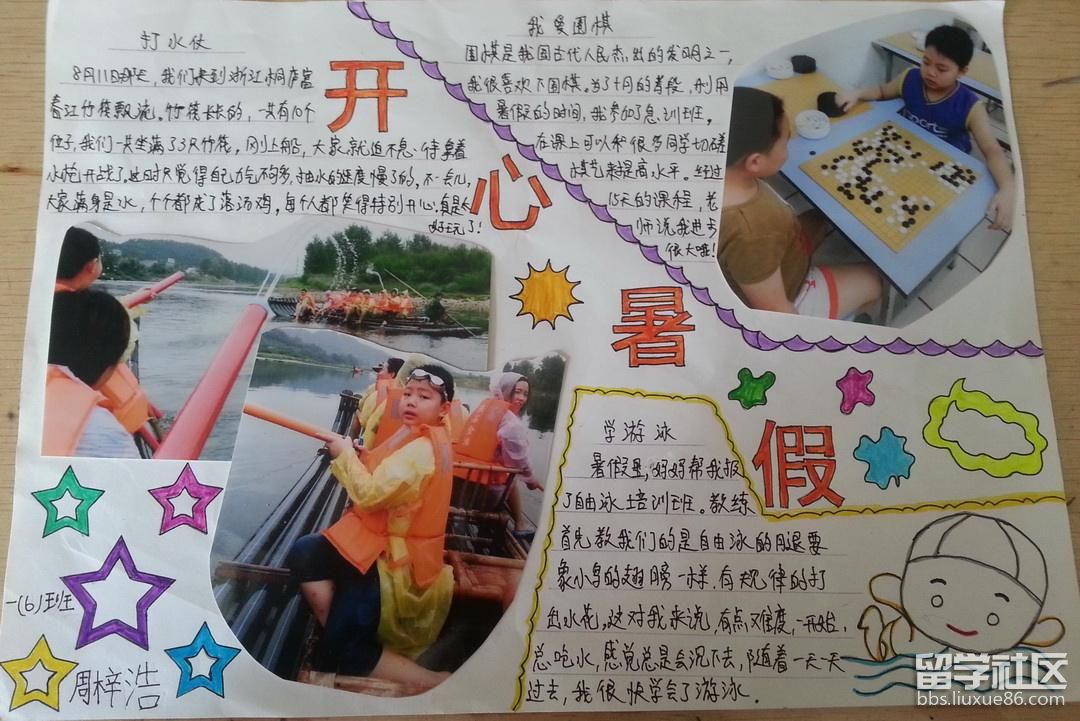 打水仗
8月11日那天，我们来到浙江桐庐富
春江竹筏飘流。竹筏长长的，一共有10个
位子，我们一共坐满了3只竹筏，刚刚上船，大家就迫不急待拿着
水炮开战了。这时只觉得自己力气不够多，抽水的速度慢了的。不一会儿，
大家满身是水，个个都成了落汤鸡，每个人都笑得特别开心，真是太
好玩了！
我爱围棋
围棋是我国古代人民杰出的发明之一，
我很喜欢下围棋。为了十月的考段，利用
暑假的时间，我参加了急训班。
在课上可以和很多同学切磋
棋艺来提高水平。经过
15天的课程，老
师说我进步
很大哦！
开心暑假
学游泳
暑假里，好好帮我报
了自由泳培训班。教练
首先教我们的是自由泳的用腿要
象小鸟的翅膀一样，有规律的打
出水花，这对我来说，有点难度，一开始，
总吃水，感觉总是会沉下去，随着一天一天
过去，我很快学会了游泳．
一(6)班
周梓浩
留学社区
bbs.liuxue86.com